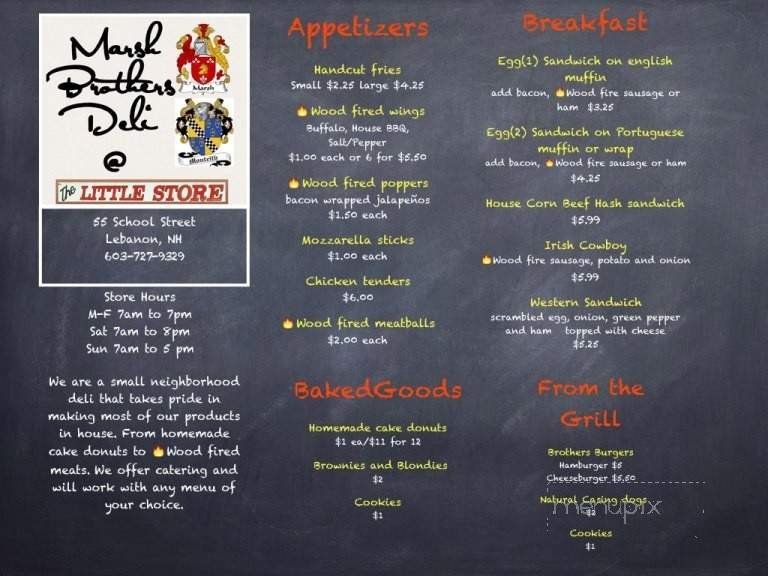 Marsh
Brothers
Deli
@
The LITTLE STORE
Marsh
Monteith
55 School Street
Lebanon, NH
603-727-9329
Store Hours
M-F 7am to 7pm
Sat 7am to 8pm
Sun 7am to 5 pm
We are a small neighborhood
deli that takes pride in
making most of our products
in house. From homemade
cake donuts to 🔥Wood fired
meats. We offer catering and
will work with any menu of
your choice.
Appetizers
Handcut fries
Small $2.25 Large $4.25
🔥Wood fired wings
Buffalo, House BBQ,
Salt/Pepper
$1.00 each or 6 for $5.50
🔥Wood fired poppers
bacon wrapped jalapeños
$1.50 each
Mozzarella sticks
$1.00 each
Chicken tenders
$6.00
🔥Wood fired meatballs
$2.00 each
BakedGoods
Homemade cake donuts
$1 ea/$11 for 12
Brownies and Blondies
$2
Cookies
$1
Breakfast
Egg(1) Sandwich on english
muffin
add bacon, 🔥Wood fire sausage or
ham $3.25
Egg(2) Sandwich on Portuguese
muffin or wrap
add bacon, 🔥Wood fire sausage or ham
$4.25
House Corn Beef Hash sandwich
$5.99
Irish Cowboy
🔥Wood fire sausage, potato and onion
$5.99
Western Sandwich
scrambled egg, onion, green pepper
and ham topped with cheese
$5.25
From the
Grill
Brothers Burgers
Hamburger $5
Cheeseburger $5.50
Natural Casing dogs
$2
Cookies
$1
menupix